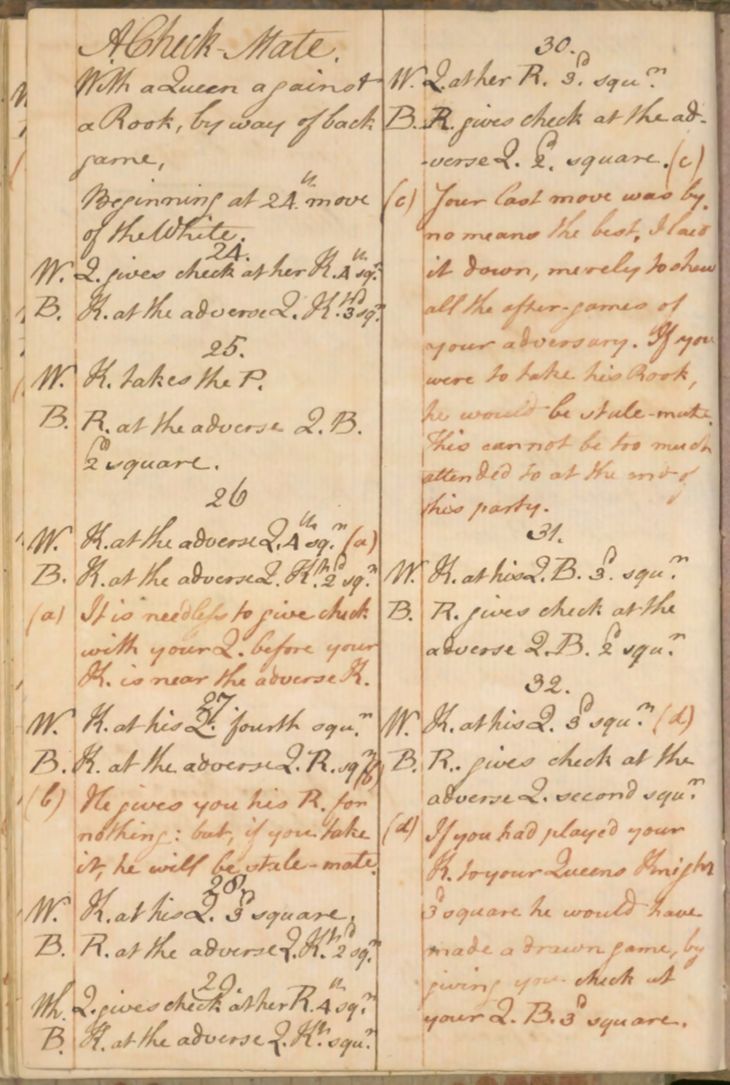 A Check-Mate.
With a Queen against
a Rook, by way of back
game,
Beginning at 24.th move
of the White.
24.
W. Q. gives check at her K. 4th sq.r
B. K. at the adverse Q. Kt. 3d sq.r
25.
W. K. takes the P.
B. R. at the adverse Q. B.
2d square.
26
W. K. at the adverse Q. 4th sq.n (a)
B. K. at the adverse Q. Kt. 2d sq.n
(a) It is needless to give check
with your Q. before your
K. is near the adverse K.
27
W. K. at his Q. fourth squ.n
B. K. at the adverse Q. R. sq.n (b)
(b) He gives you his R. for
nothing: but, if you take
it, he will be stale-mate.
28.
W. K. at his Q. 3d square,
B. R. at the adverse Q. Kt. 2d sq.n
29.
Wh. Q. gives check at her R. 4th sq.n
B. K. at the adverse Q. Kt. squ.n
30.
W. Q. at her R. 3d. squ.n
B. R. gives check at the ad-
-verse Q. 2d. square. (c)
(c) Your last move was by
no means the best, I laid
it down, merely to shew
all the after-games of
your adversary. If you
were to take his Rook,
he would be stale-mate.
This cannot be too much
attended to at the end of
this party.
31.
W. K. at his Q. B. 3d. squ.n
B. R. gives check at the
adverse Q. B. 2d squ.n
32.
W. K. at his Q. 3d squ.n (d)
B. R. gives check at the
adverse Q. second squ.n
(d) If you had played your
K. to your Queens Knight
3d square he would have
made a drawn game, by
giving you check at
your Q. B. 3d square.